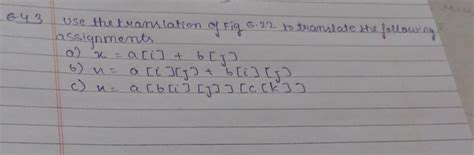 6.4.3 Use the translation of Fig 6.22 to translate the following
assignments
a) x = a[i] + b[j]
b) x = a[i][j] + b[i][j]
c) x = a[b[i][j]][c[k]]